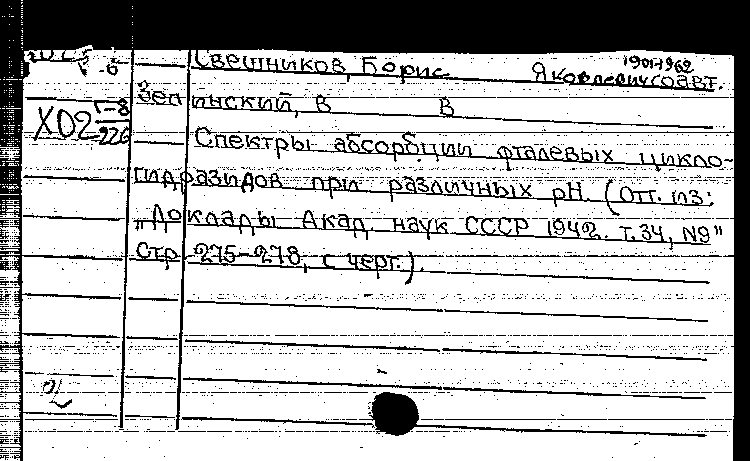 1901-1969
Свешников, Борис Яковлевич соавт.
Зелинский, В В
Х02 Г-8
226
Спектры абсорбции фталевых цикло-
гидразидов при различных рН. (Отт. из:
„Доклады Акад. наук СССР 1942. т.34, №9"
Стр 275-278, с черт.).